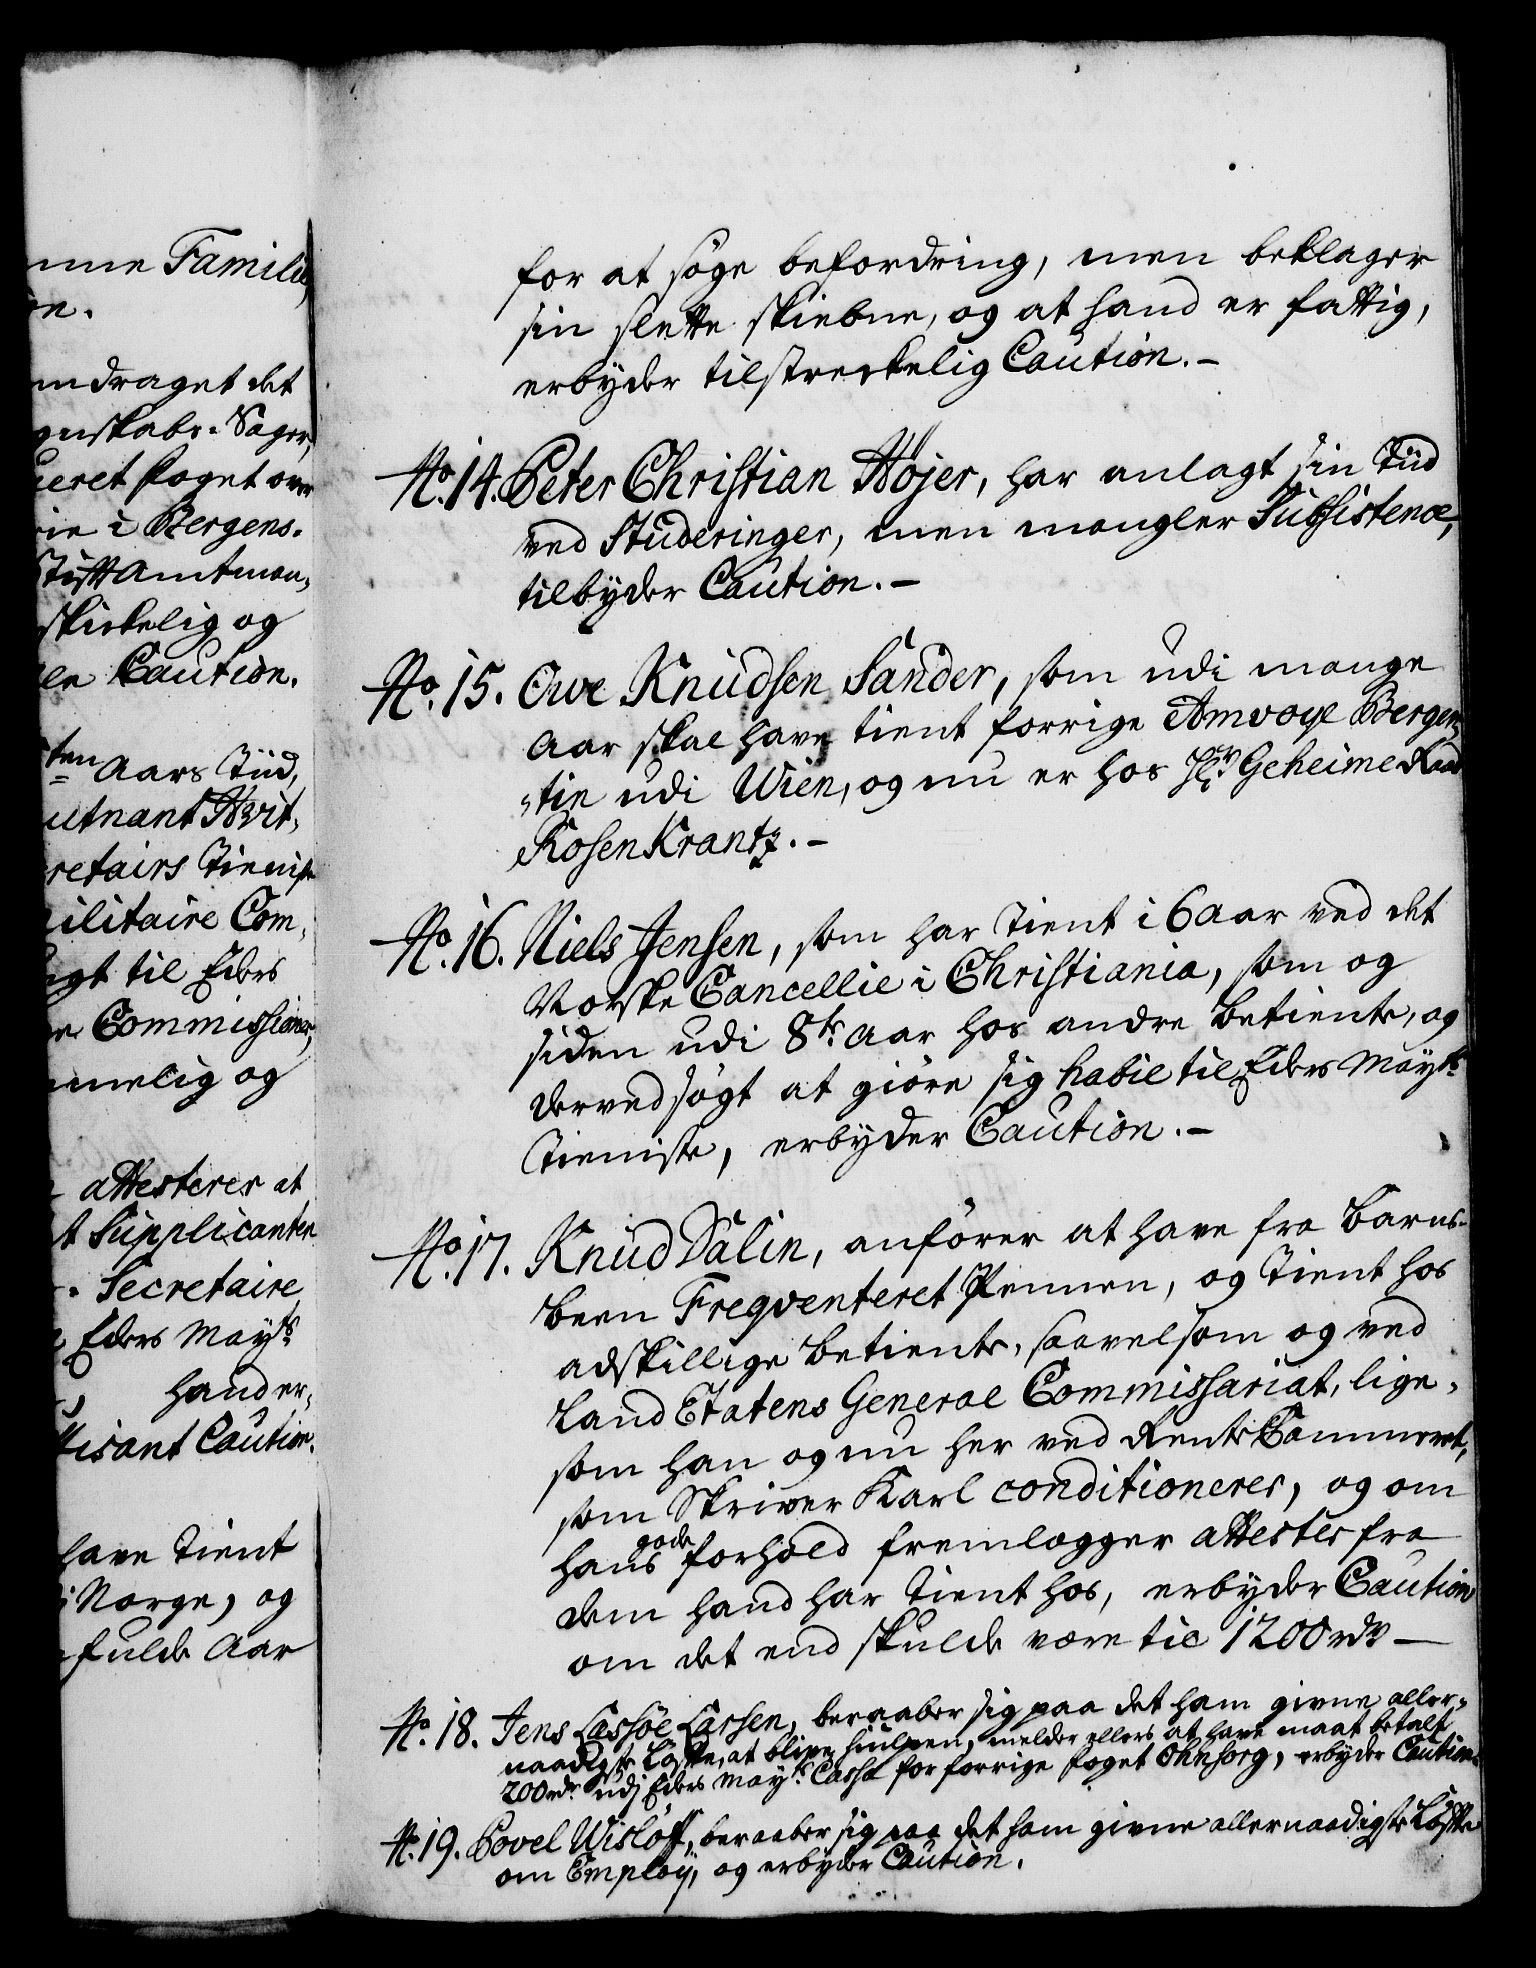 nne Familie,
ne.
mdraget det
gnskabs-Sager,
ueret foget over
rie i Bergens-
Stifft Amtman,
skikkelig og
le Caution.
ten Aars Tiid,
utnant Hvit,
retairs Tieniste
ilitaire Com,
agt til Eders
e Commissioner,
melig og
attesterer at
t Supplicanten
Secretaire
Eders Mayts
hand er,
tisant Caution.
have tient
i Norge, og
fulde Aar
for at søge befordring, men beklager
sin slette skiebne, og at hand er fattig,
erbyder tilstreckelig Caution.-
No. 14. Peter Christian Højer, har anlagt sin Tiid
ved Studeringer, men mangler Subsistence,
tilbyder Caution.-
No. 15. Owe Knudsen Sander, som udi mange
Aar skal have tient forrige Amvoye Bergen,
,,tin udi Wien, og nu er hos Hr Geheime Raad
Rosenkrantz.-
No. 16. Niels Jensen, som har tient i 6 Aar ved det
Norske Cancellie i Christiania, som og
siden udi 8te Aar hos andre betiente, og
derved søgt at giøre sig habil til Eders Mayts
Tieniste, erbyder Caution.-
No. 17. Knud Dalin, anfører at have fra Barns-
been Freqventeret Pennen, og tient hos
adskillige betiente, saavelsom og ved
Land Etatens General Commissariat, lige-
som han og nu her ved Rente Cammeret,
som Skriver Karl conditionerer, og om
hans gode forhold fremlegger attester fra
dem hand har tient hos, erbyder Caution
om det end skulde være til 1200 rdr -
No. 18. Jens Lassøe Larsen, beraaber sig paa det ham givne aller-
naadigste Løfte, at blive hiulpen, melder ellers at have maat betalt
200 rdr udj Eders Mayts Cassa for forrige foget Ohnsorg, erbyder Caution.
No. 19. Povel Wisløff, beraaber sig paa det ham givne allernaadigste Løfte
om Employ, og erbyder Caution.